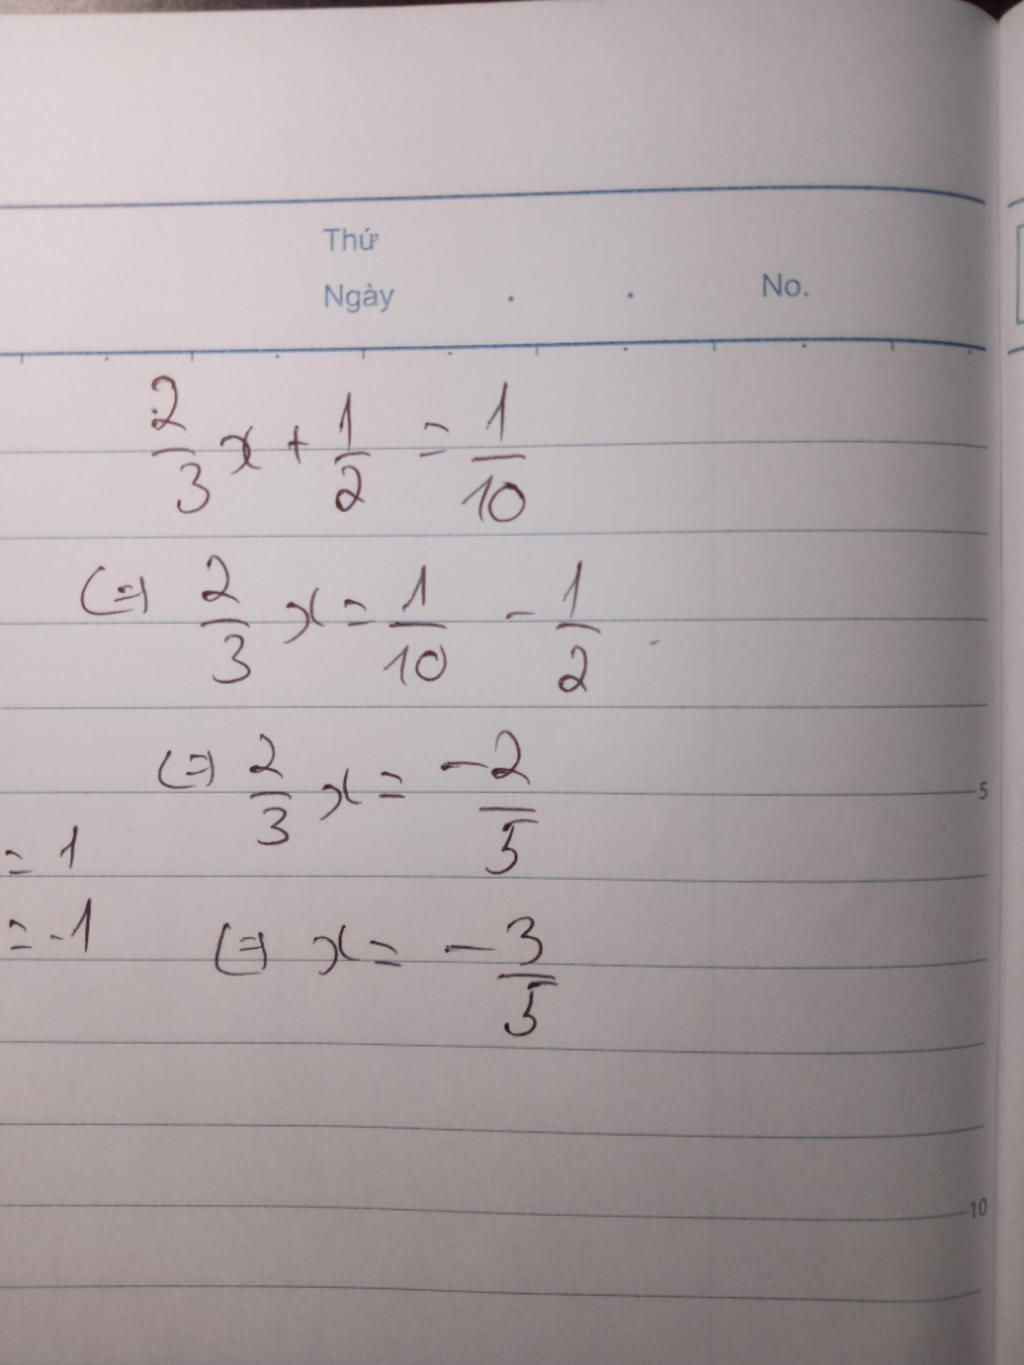 Thứ
Ngày . . No.
2/3 x + 1/2 = 1/10
(=) 2/3 x = 1/10 - 1/2
(=) 2/3 x = -2/5
5
= 1
= -1
(=) x = -3/5
10